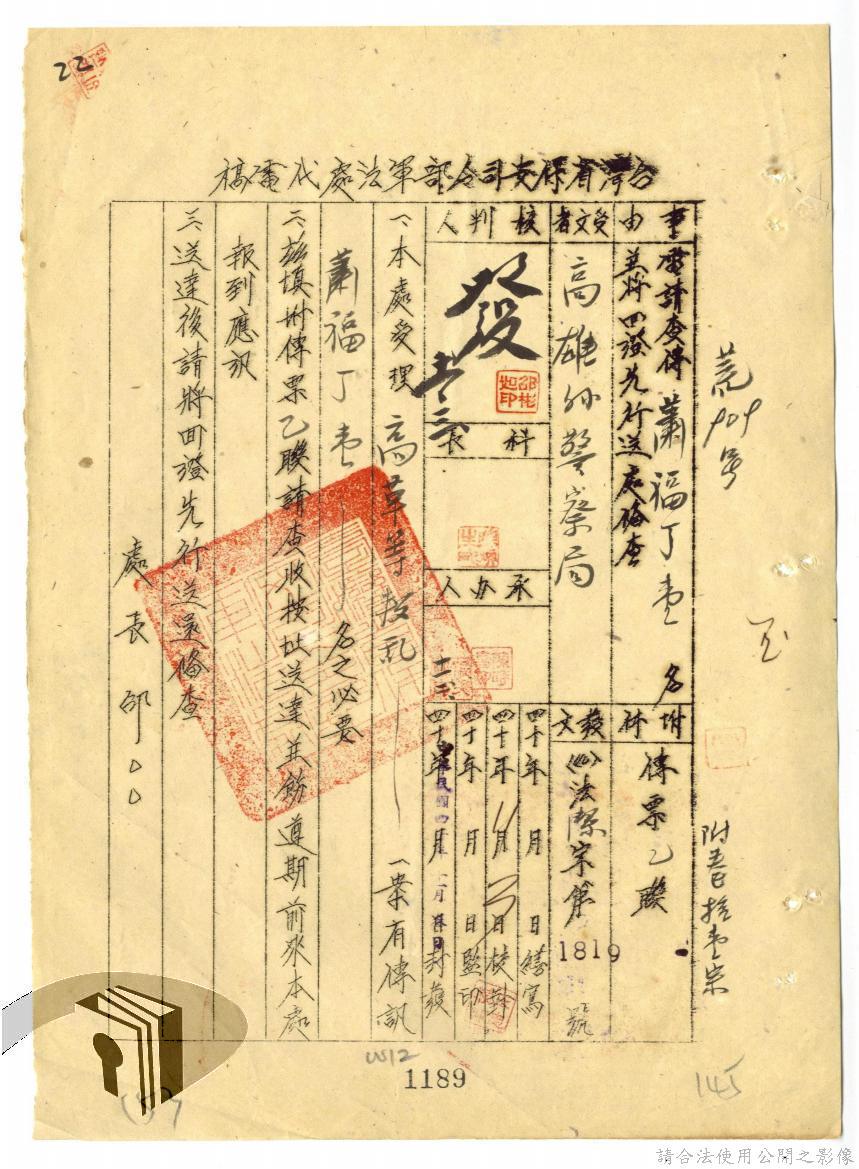 22
台灣省保安司令部軍法處代電稿
事由
電請查傳 蕭福丁壹 名
並將回證先行送處備查
附件
傳票乙聯
受文者
高雄縣警察局
發文
法潔字第
1819
號
核判人
發
邵彬如印
科長
承办人
四十年 月 日繕寫
四十年 月 日校對
四十年 月 日監印
四十年 月 日封發
一、本處受理 高草等叛亂 一案有傳訊
蕭福丁壹 名之必要
二、茲填附傳票乙聯請查收按址送達並飭遵期前來本處
報到應訊
三、送達後請將回證先行送還備查
處長 邵
1189
145
請合法使用公開之影像